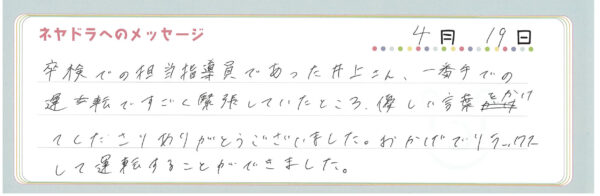 ネヤドラへのメッセージ 4月 19日
卒検での担当指導員であった井上さん、一番手での
運転ですごく緊張していたところ、優しい言葉をかけ
てくださりありがとうございました。おかげでリラックス
して運転することができました。